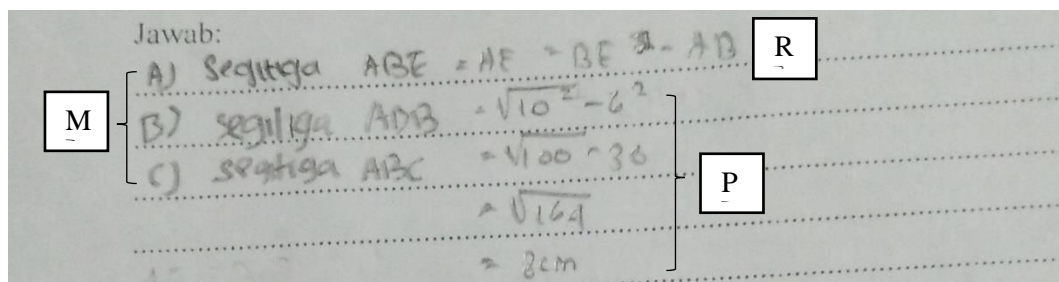 Jawab:
A) Segitiga ABE = AE = BE - AB R
M
B) segitiga ADB = √10² - 6²
C) segitiga ABC = √100 - 36
P
= √164
= 8cm